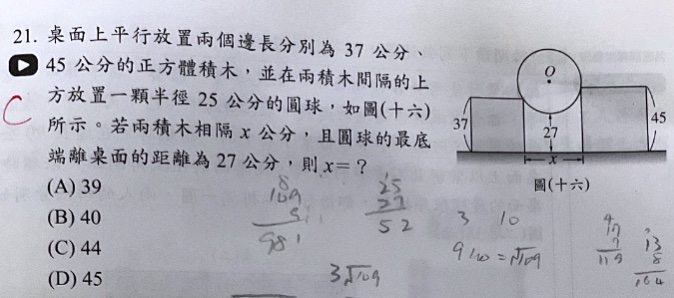 21. 桌面上平行放置兩個邊長分別為 37 公分、
45 公分的正方體積木，並在兩積木間隔的上
方放置一顆半徑 25 公分的圓球，如圖(十六)
所示。若兩積木相隔 x 公分，且圓球的最底
端離桌面的距離為 27 公分，則 x= ?
C
(A) 39
(B) 40
(C) 44
(D) 45
O
37
27
45
x
圖(十六)
25
27
52
3 10
3√109